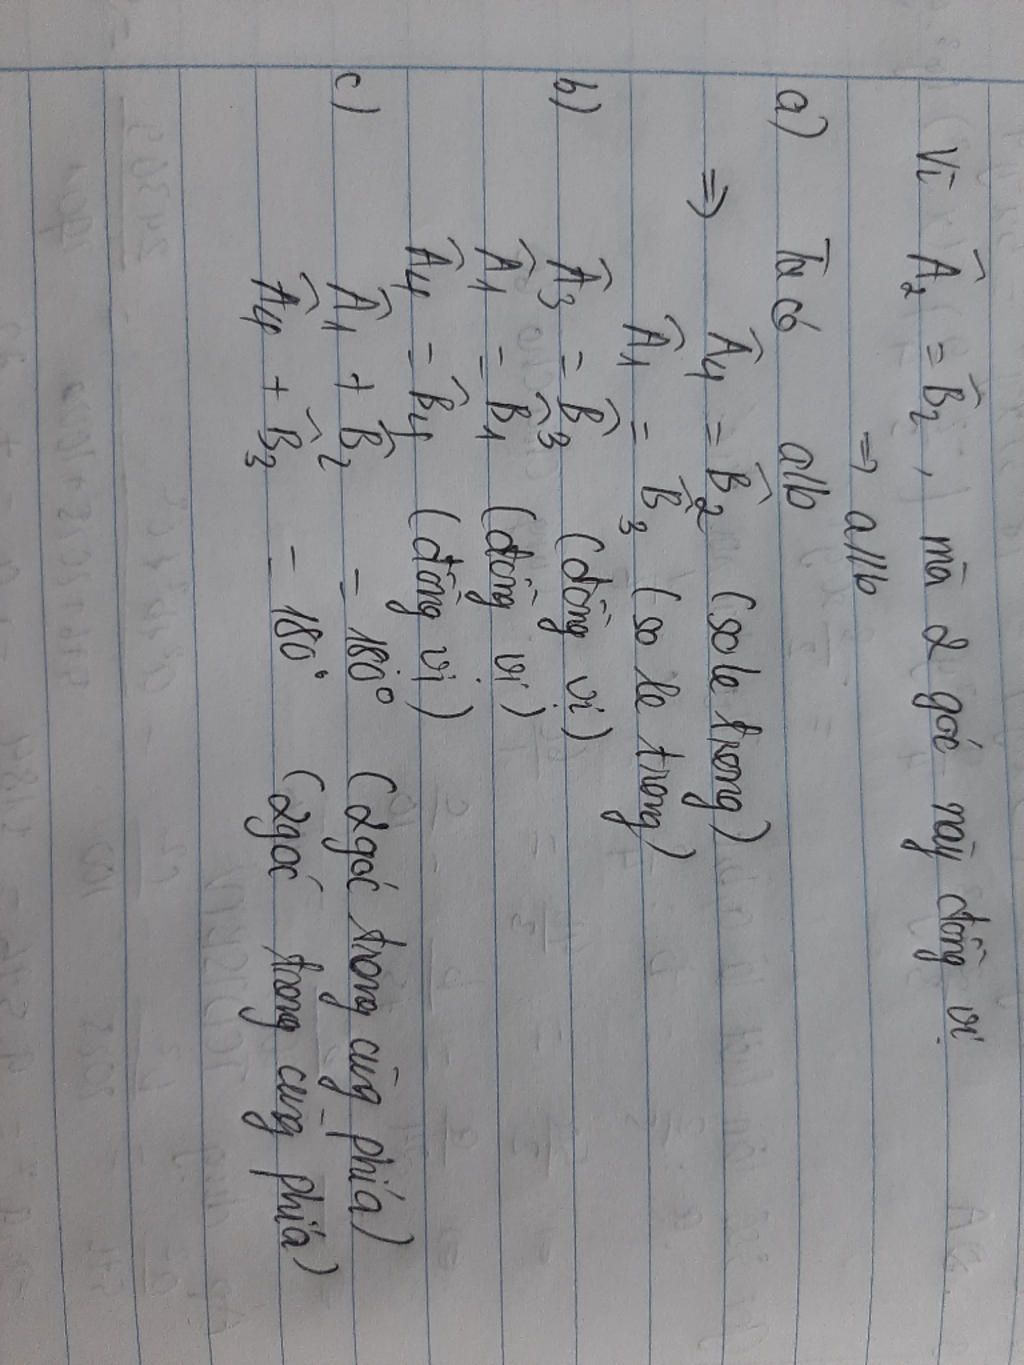 Vì Â₂ = B̂₂, mà 2 góc này đồng vị
⇒ a//b
a) Ta có a//b
⇒ Â₄ = B̂₂ (so le trong)
Â₁ = B̂₃ (so le trong)
b) Â₃ = B̂₃ (đồng vị)
Â₁ = B̂₁ (đồng vị)
Â₄ = B̂₄ (đồng vị)
c) Â₁ + B̂₂ = 180° (2 góc trong cùng phía)
Â₄ + B̂₃ = 180° (2 góc trong cùng phía)